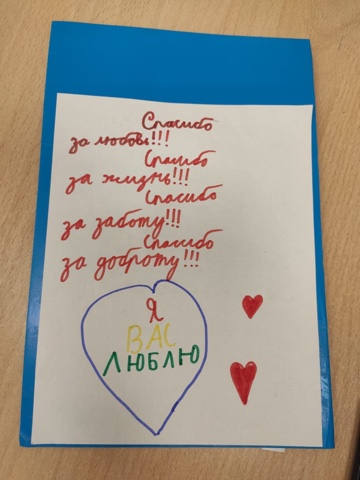 Спасибо
за любовь!!!
Спасибо
за жизнь!!!
Спасибо
за заботу!!!
Спасибо
за доброту!!!
Я
ВАС
ЛЮБЛЮ